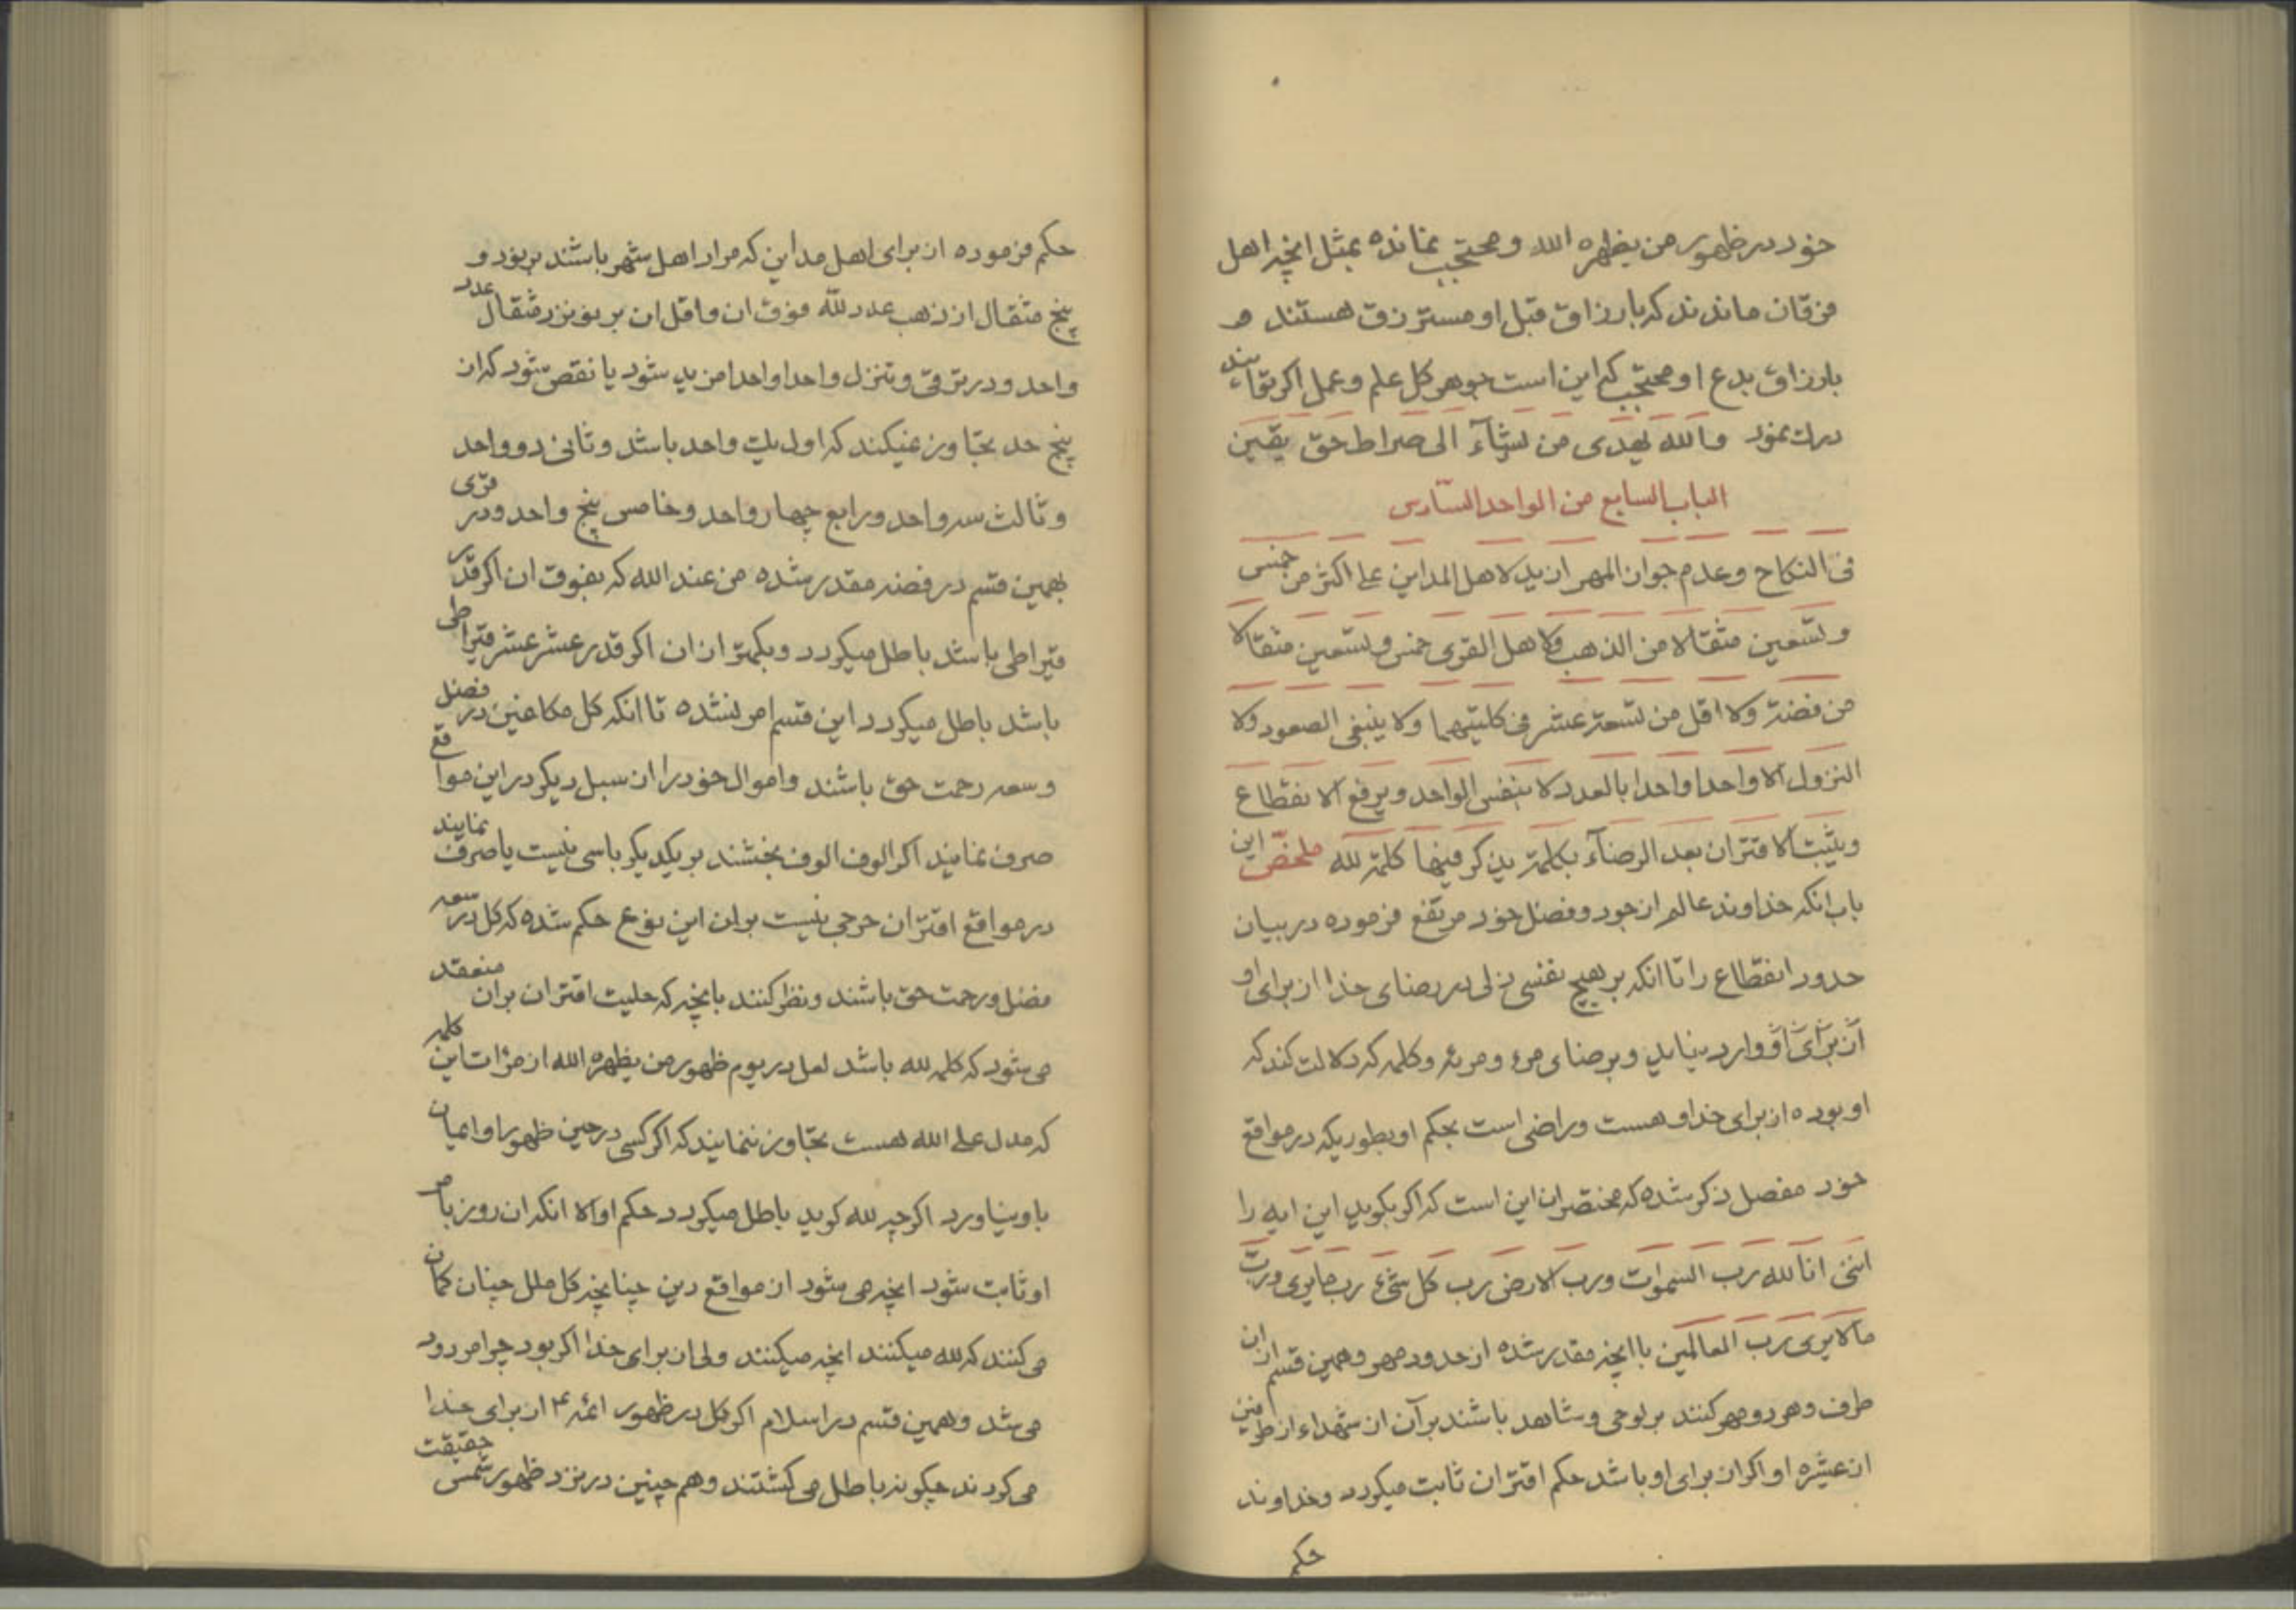 خود در ظهور من یظهره الله و محتجب نمانده بمثل انچه اهل
فرقان ماندند که بارزاق قبل او مسترزق هستند و
بارزاق بدع او محتجب کم این است جوهر کل علم و عمل اکر توانند
درك نمود والله یهدی من یشآء الی صراط حق یقین
الباب السابع من الواحد السادس
فی النکاح و عدم جواز المهر ازید لاهل المداین علی اکثر من خمس
و تسعین مثقالا من الذهب ولاهل القری خمس و تسعین مثقالا
من فضة ولا اقل من تسعة عشر فی کلیتهما ولا ینبغی الصعود ولا
النزول الا واحدا واحدا بالعدد لا بنفس الواحد و یرفع الانقطاع
و یثبت الاقتران بعد الرضآء بکلمة یذکر فیها کلمة لله ملخص این
باب انکه خداوند عالم از جود و فضل خود مرتفع فرموده در بیان
حدود انقطاع را تا انکه بر هیچ نفسی ذلی در رضای خدا از برای او
از برای او وارد نیاید و برضای مرء و مرئه و کلمه که دلالت کند که
او بوده از برای خدا و هست و راضی است بحکم او بطوریکه در مواقع
خود مفصل ذکر شده که مختصر ان این است که اکر بکوید این ایه را
اننی انا لله رب السموات و رب الارض رب کل شیء رب ما یری و رب
ما لا یری رب العالمین با انچه مقدر شده از حدود مهر و همین قسم ان
طرف و هر دو مهر کنند بر لوحی و شاهد باشند بر آن از شهداء از طرفین
از عشیره او اکر از برای او باشد حکم اقتران ثابت میکردد و خداوند
حکم
حکم فرموده از برای اهل مداین که مراد اهل شهر باشند بر نود و
پنج مثقال از ذهب عدد لله فوق ان و اقل ان بر نوزده مثقال عدد
واحد و در ترقی و تنزل واحدا واحدا مزید شود یا نقص شود که از
پنج حد تجاوز نمیکند که اول یك واحد باشد و ثانی دو واحد
و ثالث سه واحد و رابع چهار واحد و خامس پنج واحد و در قری
بهمین قسم در فضه مقدر شده من عند الله که بفوق ان اکر قدر
قیراطی باشد باطل میکردد و بکمتر از ان اکر قدر عشر عشر قیراطی
باشد باطل میکردد این قسم امر نشده تا انکه کل مکلفین در فضل
و سعه رحمت حق باشند و اموال خود را از سبل دیکر در این مواقع
صرف نمایند اکر الوف الوف بخشند بر یکدیکر باسی نیست یا صرف نمایند
در مواقع اقتران حرجی نیست بر ان این نوع حکم شده که کل در سعه
فضل و رحمت حق باشند و نظر کنند بانچه که حلیت اقتران بران منعقد
می شود که کلمه لله باشد لعل در یوم ظهور من یظهره الله از مرات این کلمه
که مدل علی الله هست تجاوز ننمایند که اکر کسی در حین ظهور او ایمان
باو نیاورد اکر چه لله کوید باطل میکردد حکم او الا انکه ان روز بامر
او ثابت شود انچه می شود از مواقع دین چنانچه کل ملل چنان کمان
می کنند که لله میکنند انچه میکنند ولی از برای خدا اکر بود چرا مردود
می شد و همین قسم در اسلام اکر کل در ظهور ائمه ع از برای خدا
می کردند چکونه باطل می کشتند و هم چنین در نزد ظهور شمس حقیقت